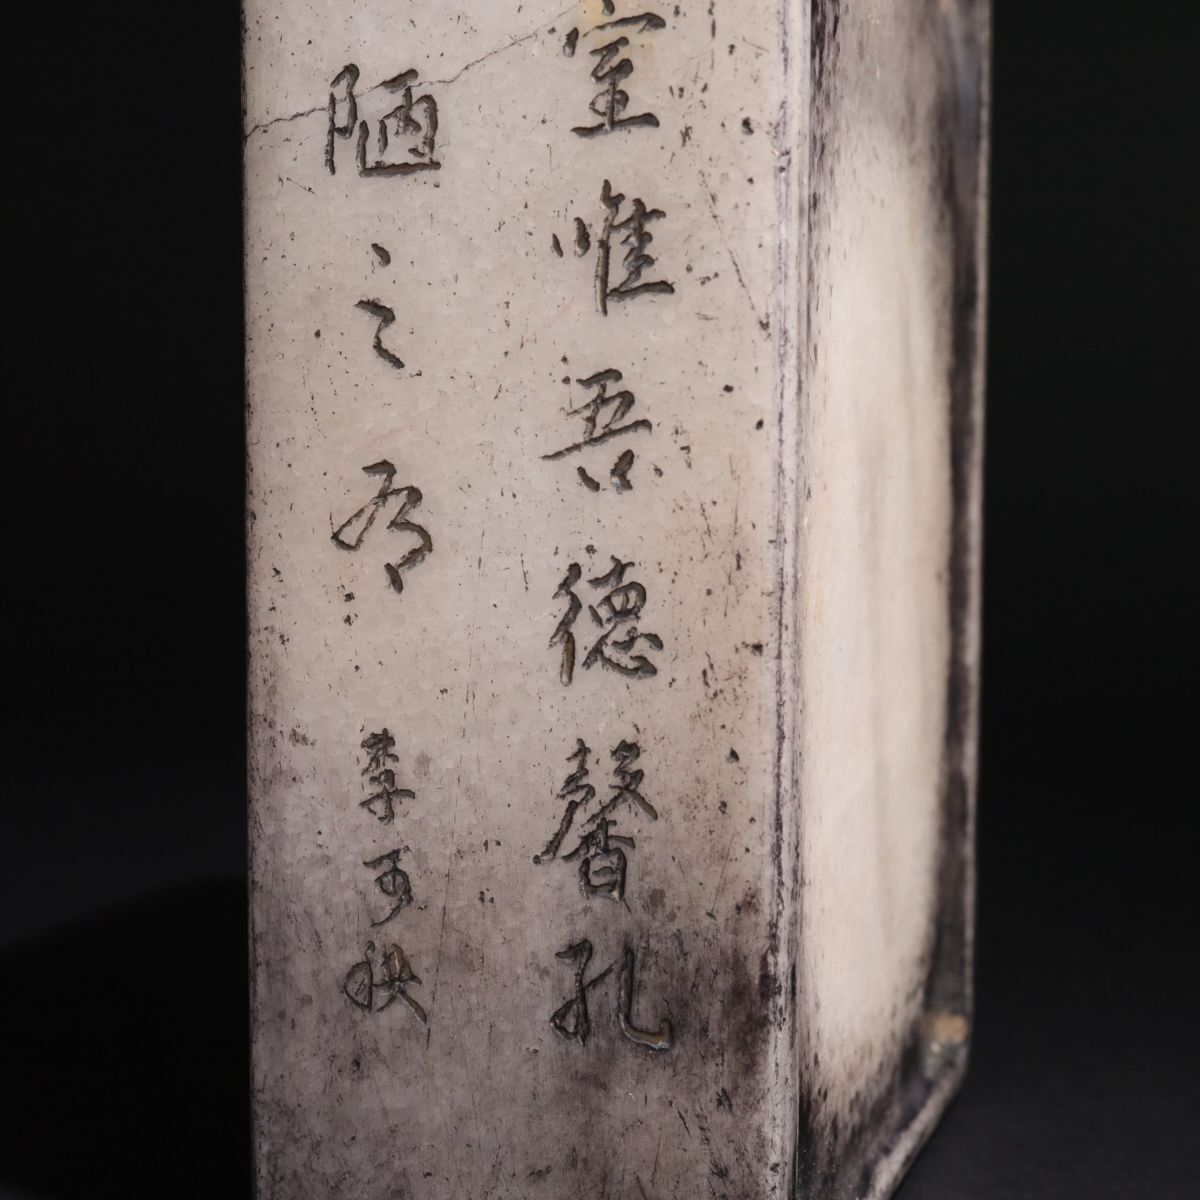 室惟吾德馨孔
陋之有
李可秧